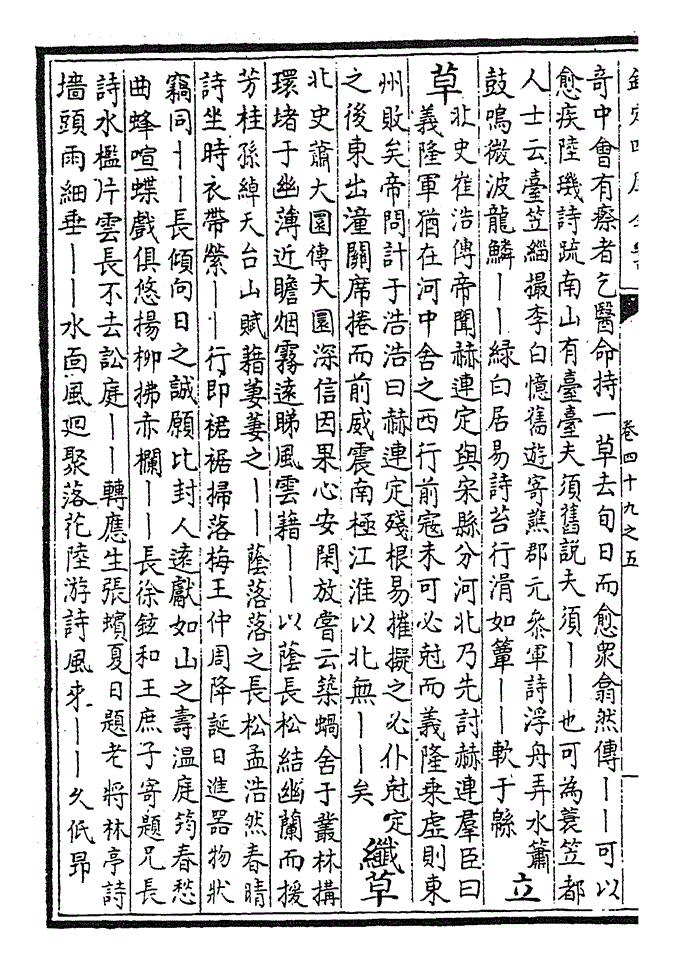 卷四十九之五
竒中會有瘵者乞醫命持一草去旬日而愈衆翕然傳丨丨可以
愈疾陸璣詩疏南山有臺臺夫須舊說夫須丨丨也可為蓑笠都
人士云臺笠緇撮李白憶舊遊寄譙郡元叅軍詩浮舟弄水簫
鼓鳴微波龍鱗丨丨緑白居易詩苔行滑如簟丨丨軟于緜
立
草
北史崔浩傳帝聞赫連定與宋縣分河北乃先討赫連羣臣曰
義隆軍猶在河中舍之西行前寇未可必尅而義隆乘虛則東
州敗矣帝問計于浩浩曰赫連定殘根易摧擬之必仆尅定
之後東出潼關席捲而前威震南極江淮以北無丨丨矣
纖草
北史蕭大圜傳大圜深信因果心安閑放嘗云築蝸舍于叢林搆
環堵于幽薄近瞻烟霧遠睇風雲藉丨丨以蔭長松結幽蘭而援
芳桂孫綽天台山賦藉萋萋之丨丨蔭落落之長松孟浩然春晴
詩坐時衣帶縈丨丨行即裙裾掃落梅王仲周降誕日進器物狀
竊同丨丨長傾向日之誠願比封人遠獻如山之壽温庭筠春愁
曲蜂喧蝶戲俱悠揚柳拂赤欄丨丨長徐鉉和王庶子寄題兄長
詩水檻片雲長不去訟庭丨丨轉應生張蠙夏日題老將林亭詩
墻頭雨細垂丨丨水面風迴聚落花陸游詩風來丨丨久低昻